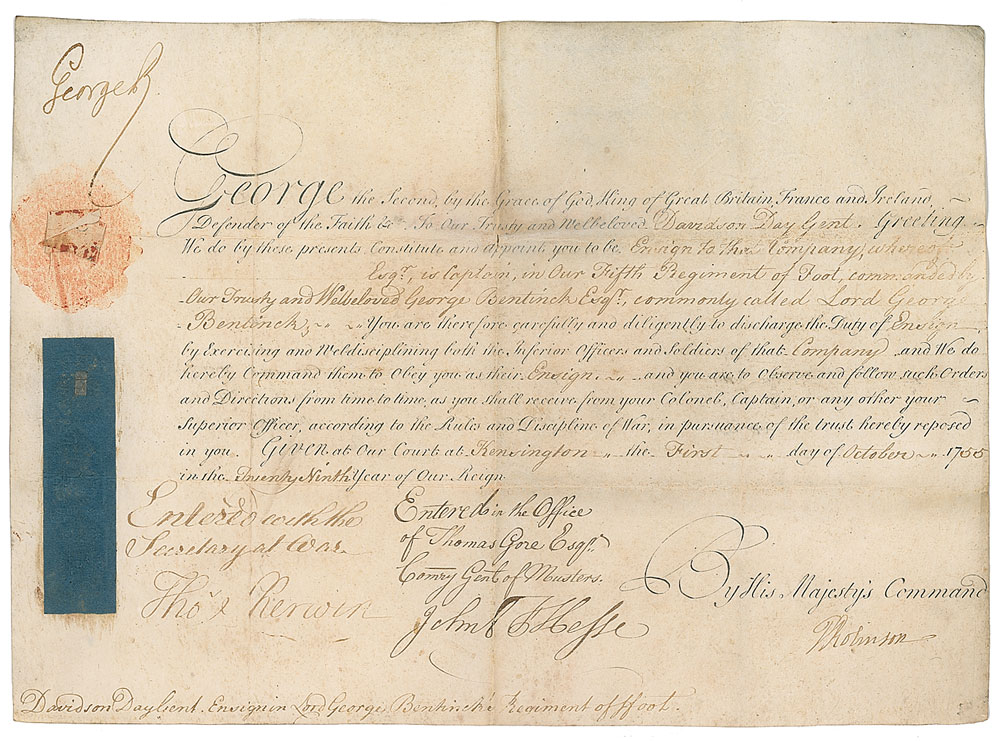 George R
George the Second, by the Grace of God, King of Great Britain, France and Ireland,
Defender of the Faith &c. To Our Trusty and Welbeloved Davidson Day Gent. Greeting
We do by these presents, Constitute and appoint you to be Ensign to that Company, whereof
Esqr. is Captain, in Our Fifth Regiment of Foot, commanded by
Our Trusty and Welbeloved George Bentinck Esqr., commonly called Lord George
Bentinck, You are therefore carefully and diligently to discharge the Duty of Ensign
by Exercising and Weldisciplining both the Inferior Officers and Soldiers of that Company and We do
hereby Command them to Obey you as their Ensign. and you are to Observe and follow such Orders
and Directions from time to time, as you shall receive from your Colonel, Captain, or any other your
Superior Officer, according to the Rules and Discipline of War, in pursuance of the trust hereby reposed
in you. Given at Our Court at Kensington the First day of October 1755
in the Twenty Ninth Year of Our Reign
Entered with the
Secretary at War
Thos. Sherwin
Entered in the Office
of Thomas Gore Esqr.
Comry Genl. of Musters.
John F Hesse
By His Majesty's Command
T Robinson
Davidson Day Gent. Ensign in Lord George Bentinck's Regiment of Foot.